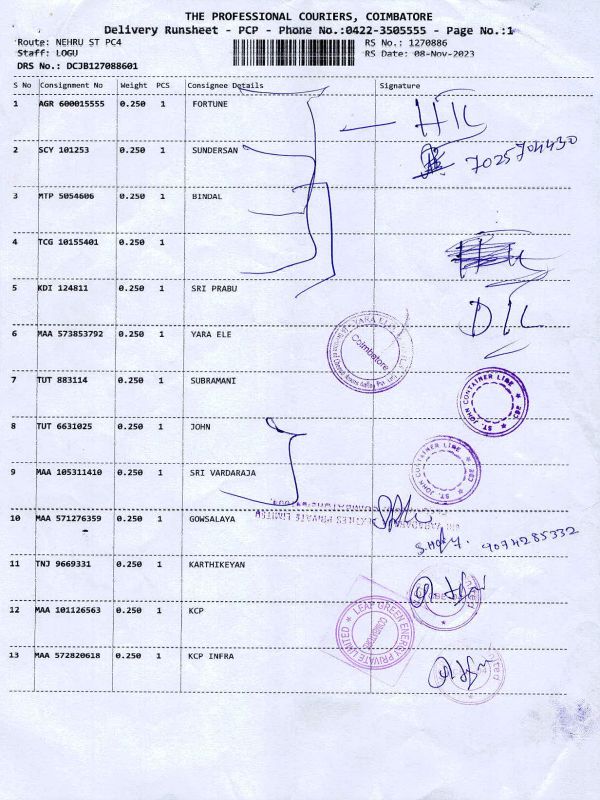 THE PROFESSIONAL COURIERS, COIMBATORE
Delivery Runsheet - PCP - Phone No.:0422-3505555 - Page No.:1
Route: NEHRU ST PC4 RS No.: 1270886
Staff: LOGU RS Date: 08-Nov-2023
DRS No.: DCJB127088601
S No Consignment No Weight PCS Consignee Details Signature
1 AGR 600015555 0.250 1 FORTUNE
2 SCY 101253 0.250 1 SUNDERSAN 7025704430
3 MTP 5054606 0.250 1 BINDAL
4 TCG 10155401 0.250 1
5 KDI 124811 0.250 1 SRI PRABU
6 MAA 573853792 0.250 1 YARA ELE
Coimbatore
7 TUT 883114 0.250 1 SUBRAMANI
ST. JOHN CONTAINER LINE * 283 *
8 TUT 6631025 0.250 1 JOHN
ST. JOHN CONTAINER LINE * 283 *
9 MAA 105311410 0.250 1 SRI VARDARAJA
10 MAA 571276359 0.250 1 GOWSALAYA
9074285332
11 TNJ 9669331 0.250 1 KARTHIKEYAN
12 MAA 101126563 0.250 1 KCP
LEAP GREEN ENERGY PRIVATE LIMITED *
COIMBATORE
13 MAA 572820618 0.250 1 KCP INFRA